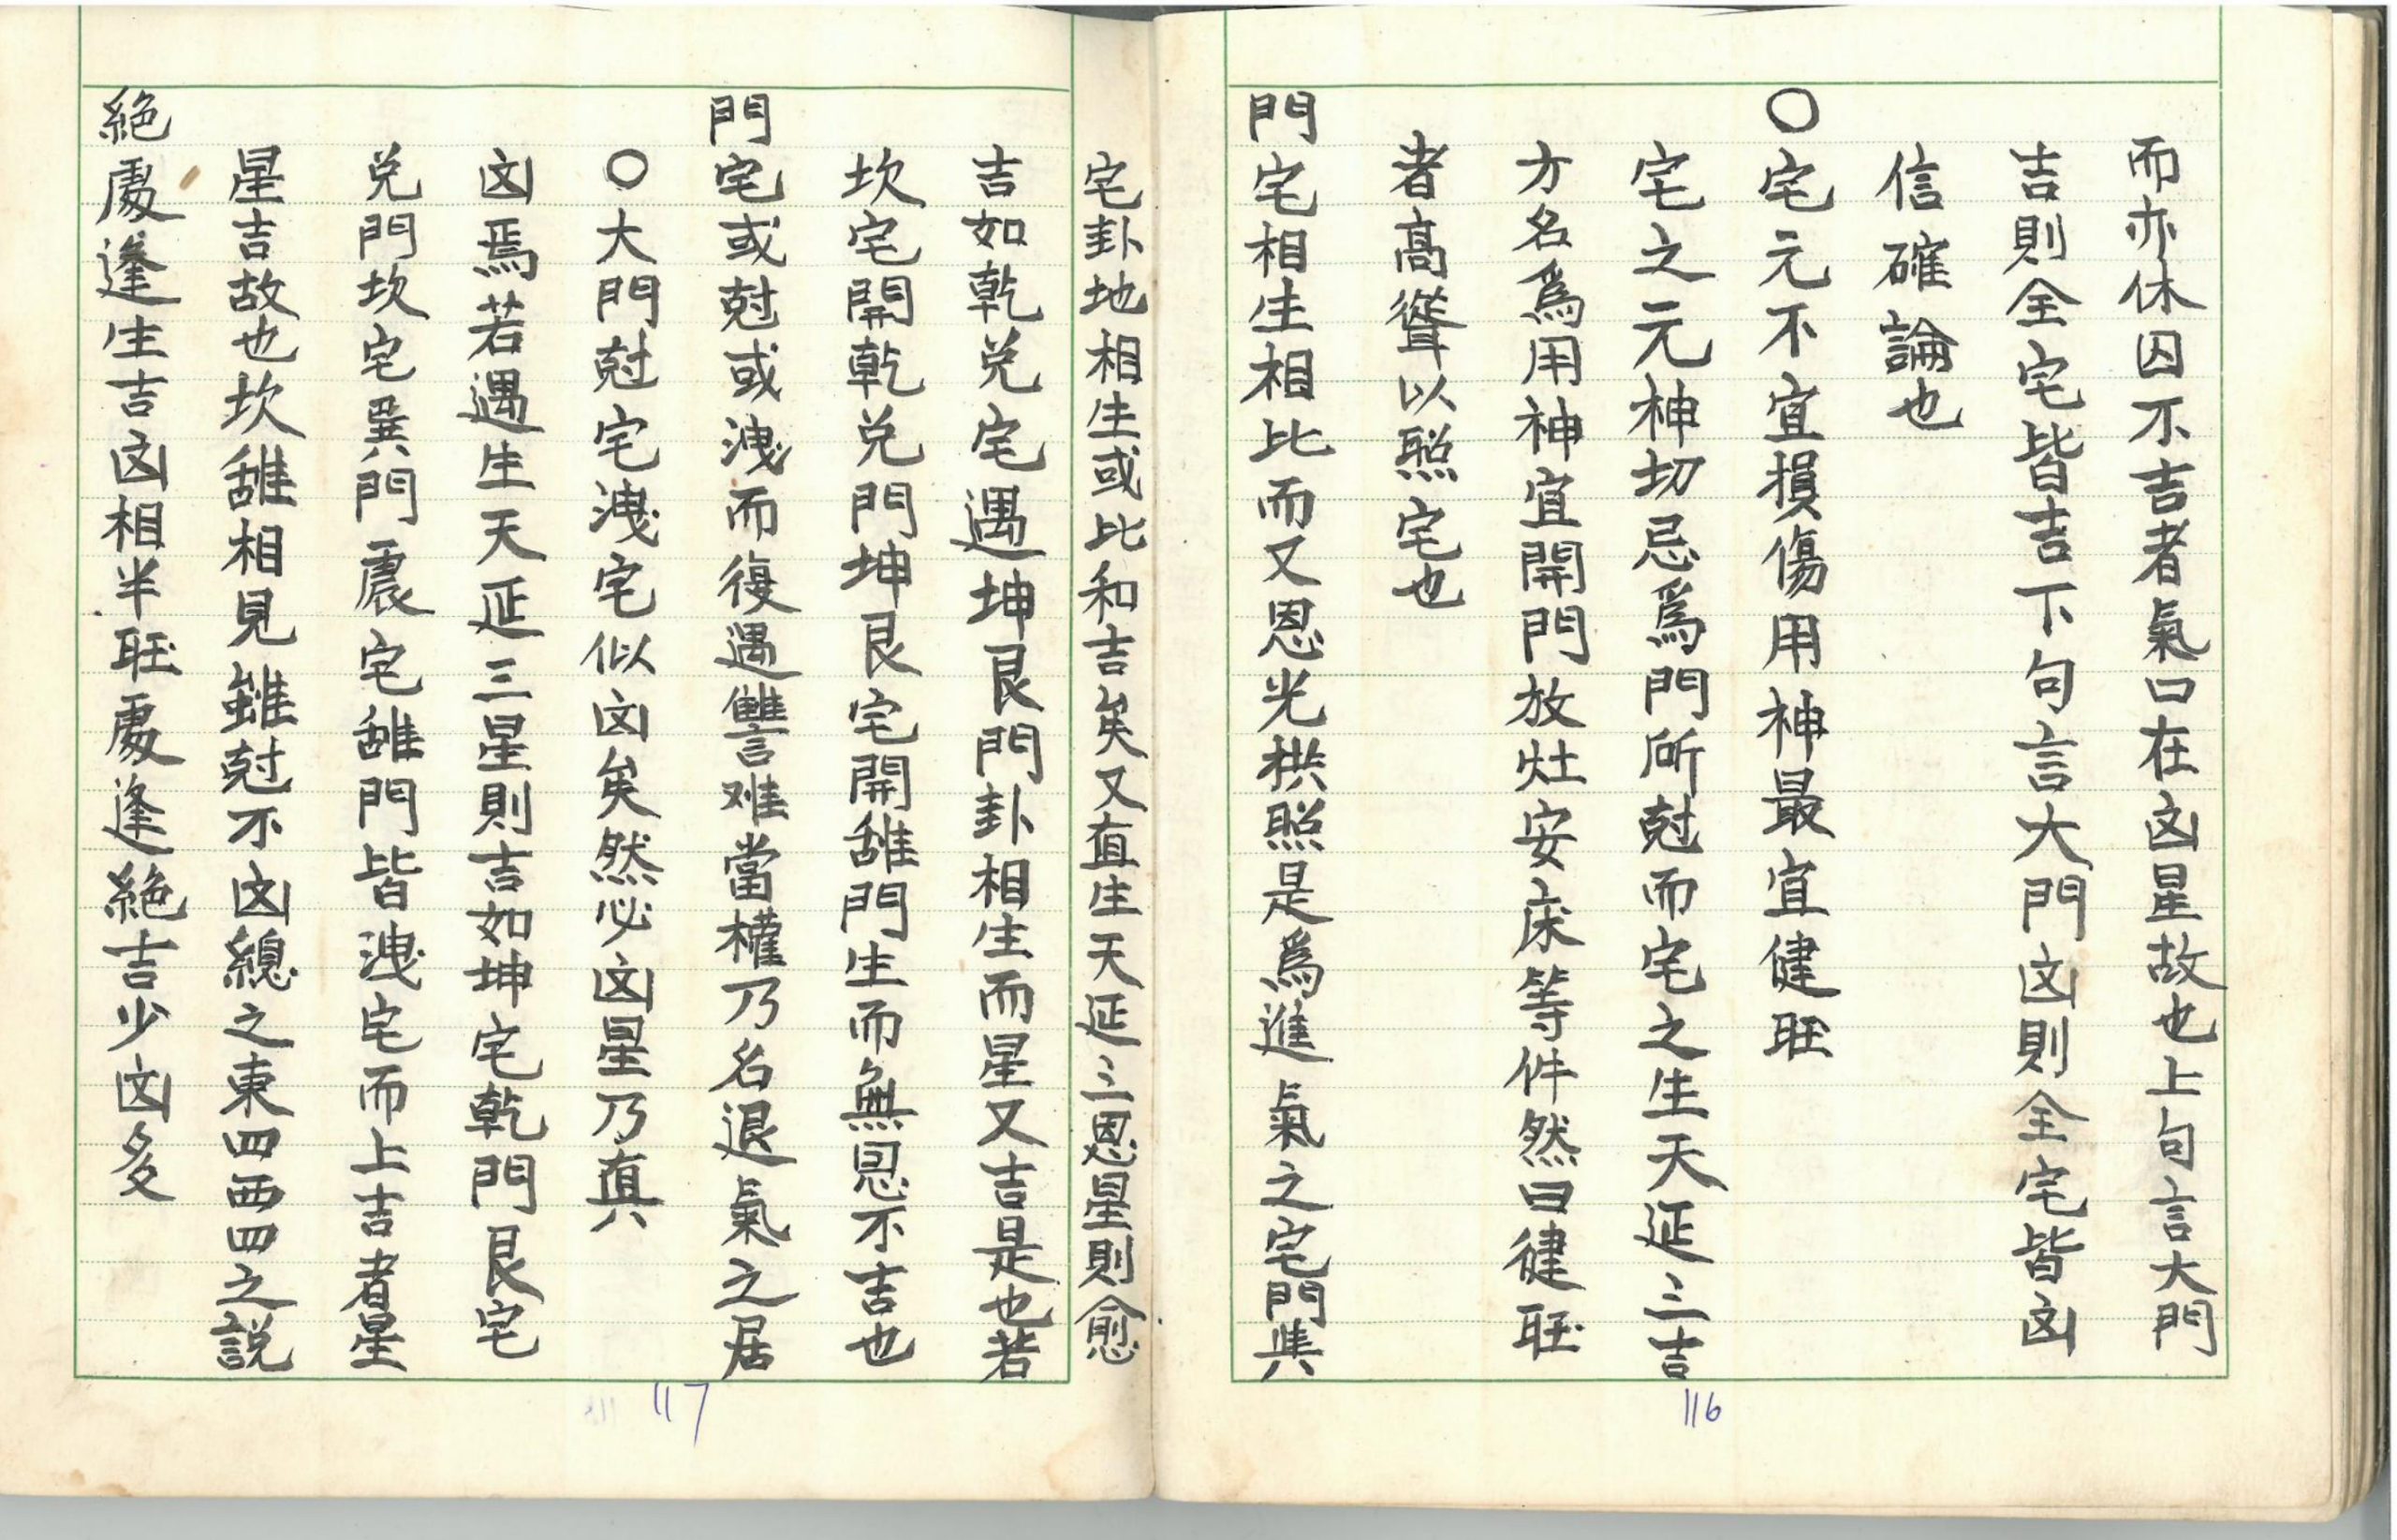 而亦休囚不吉者氣口在凶星故也上句言大門
吉則全宅皆吉下句言大門凶則全宅皆凶
信確論也
〇宅元不宜損傷用神最宜健旺
宅之元神切忌爲門所尅而宅之生天延三吉
方名爲用神宜開門放灶安床等件然曰健旺
者高聳以照宅也
門宅相生相比而又恩光拱照是爲進氣之宅門與
宅卦地相生或比和吉矣又直生天延三恩星則愈
吉如乾兌宅遇坤艮門卦相生而星又吉是也若
坎宅開乾兌門坤艮宅開離門生而無恩不吉也
門宅或尅或洩而復遇讐难當權乃名退氣之居
〇大門尅宅洩宅似凶矣然必凶星乃真
凶焉若遇生天延三星則吉如坤宅乾門艮宅
兌門坎宅巽門震宅離門皆洩宅而上吉者星
星吉故也坎離相見雖尅不凶總之東四西四之説
絕處逢生吉凶相半旺處逢絕吉少凶多
117
116